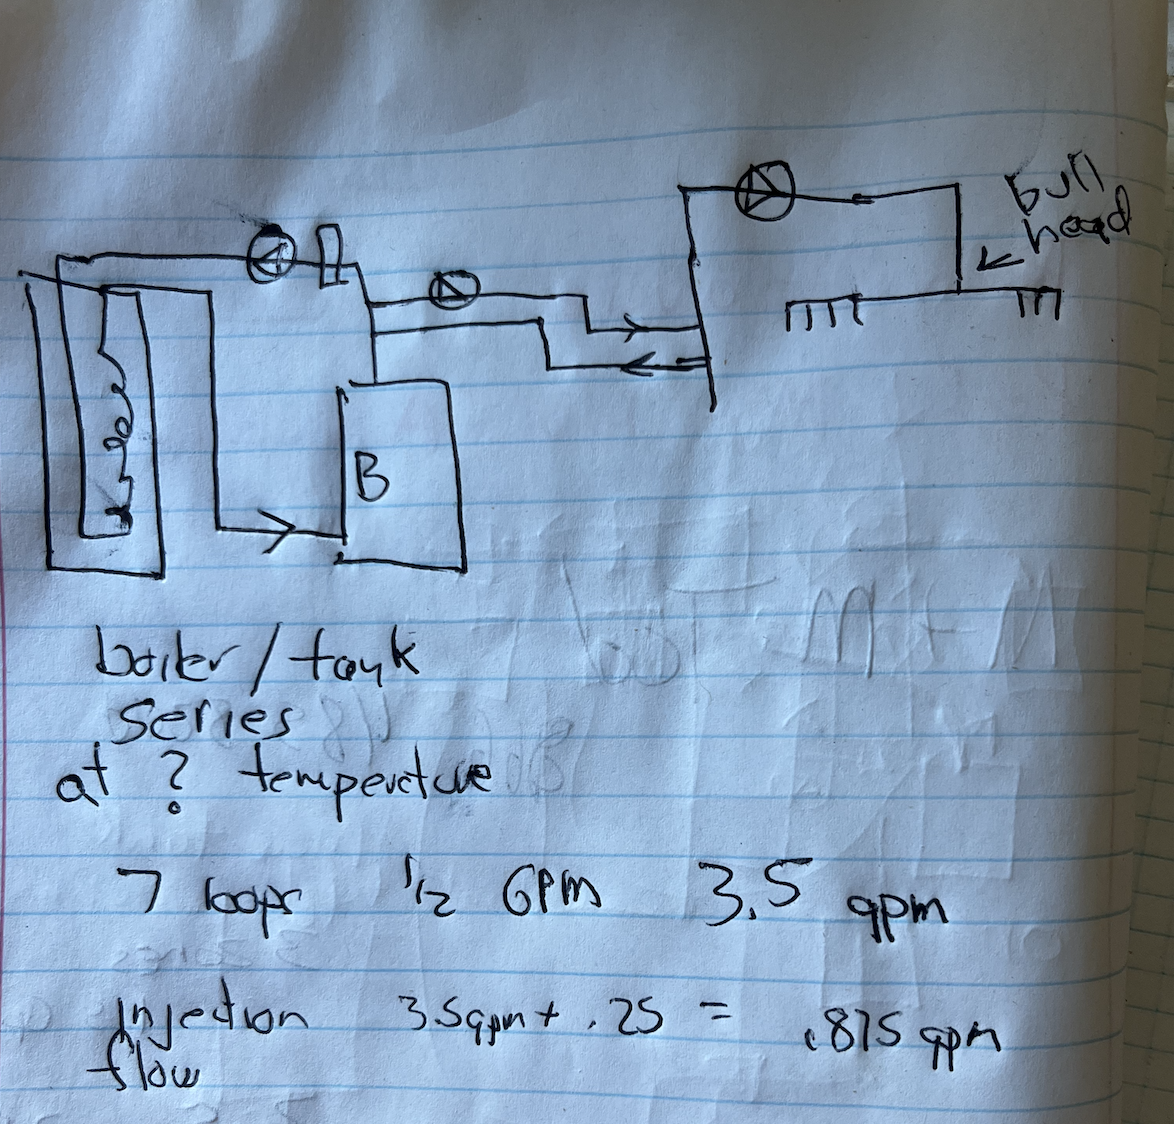 bull
head
B
boiler/tank
series
at ? temperature
7 loops 1/2 GPM 3.5 gpm
Injection 3.5gpm + .25 = .875 gpm
flow